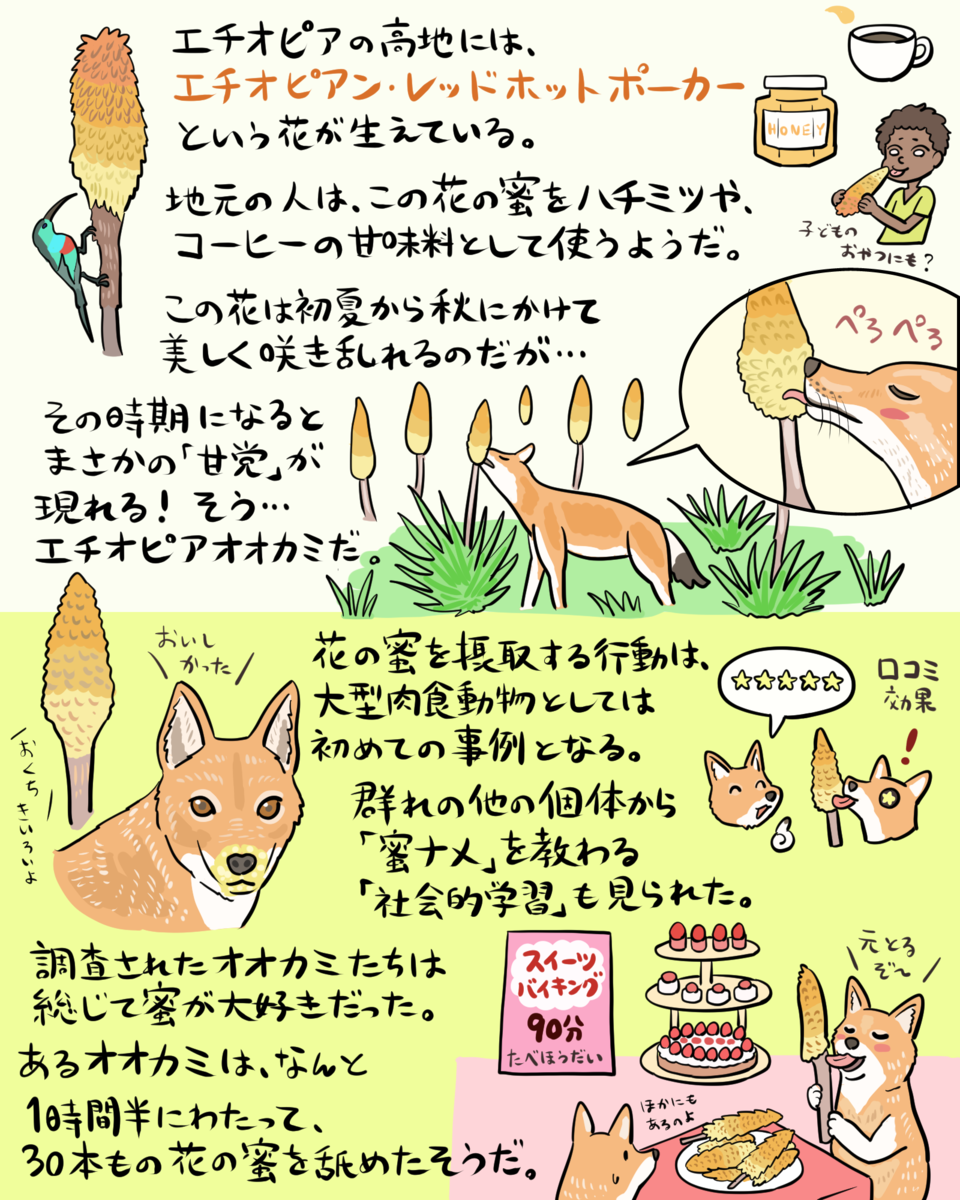 エチオピアの高地には、
エチオピアン・レッドホットポーカー
という花が生えている。
HONEY
地元の人は、この花の蜜をハチミツや、
コーヒーの甘味料として使うようだ。
子どもの
おやつにも?
この花は初夏から秋にかけて
美しく咲き乱れるのだが…
ぺろぺろ
その時期になると
まさかの「甘党」が
現れる!そう…
エチオピアオオカミだ。
おいし
かった
おくち
きいろいよ
花の蜜を摂取する行動は、
大型肉食動物としては
初めての事例となる。
口コミ
効果
群れの他の個体から
「蜜ナメ」を教わる
「社会的学習」も見られた。
調査されたオオカミたちは
総じて蜜が大好きだった。
スイーツ
バイキング
90分
たべほうだい
元とる
ぞ〜
あるオオカミは、なんと
1時間半にわたって、
30本もの花の蜜を舐めたそうだ。
ほかにも
あるのよ